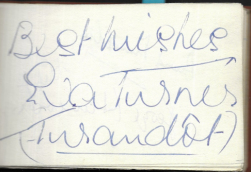 Best wishes
Eva Turner
(Turandôt)